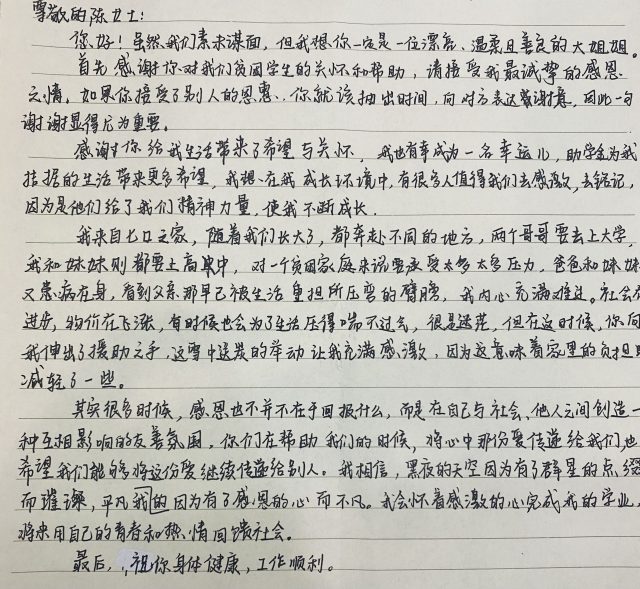 尊敬的陈女士:
您好!虽然我们素未谋面,但我想你一定是一位漂亮、温柔且善良的大姐姐。
首先感谢你对我们贫困学生的关怀和帮助,请接受我最诚挚的感恩
之情。如果你接受了别人的恩惠,你就该抽出时间,向对方表达感谢意,因此一句
谢谢显得尤为重要。
感谢你给我生活带来了希望与关怀,我也有幸成为一名幸运儿,助学金为我
拮据的生活带来更多希望,我想,在我成长环境中,有很多人值得我们去感激,去铭记,
因为是他们给了我们精神力量,使我不断成长.
我来自七口之家,随着我们长大了,都奔赴不同的地方,两个哥哥要去上大学,
我和妹妹则都要上高中,对一个贫困家庭来说要承受太多太多压力,爸爸和妹妹
又患病在身,看到父亲那早已被生活重担所压弯的臂膀,我内心充满难过。社会在
进步,物价在飞涨,有时候也会为了生活压得喘不过去,很是迷茫,但在这时候,你向
我伸出了援助之手,这雪中送炭的举动让我充满感激,因为这意味着家里的负担
减轻了一些。
其实很多时候,感恩也不并不在于回报什么,而是在自己与社会、他人之间创造一
种互相影响的友善氛围,你们在帮助我们的时候,将心中那份爱传递给我们,也
希望我们能够将这份爱继续传递给别人。我相信,黑夜的天空因为有了群星的点缀
而璀璨,平凡我的因为有了感恩的心而不凡。我会怀着感激的心完成我的学业,
将来用自己的青春和热情回馈社会。
最后,祝你身体健康,工作顺利。